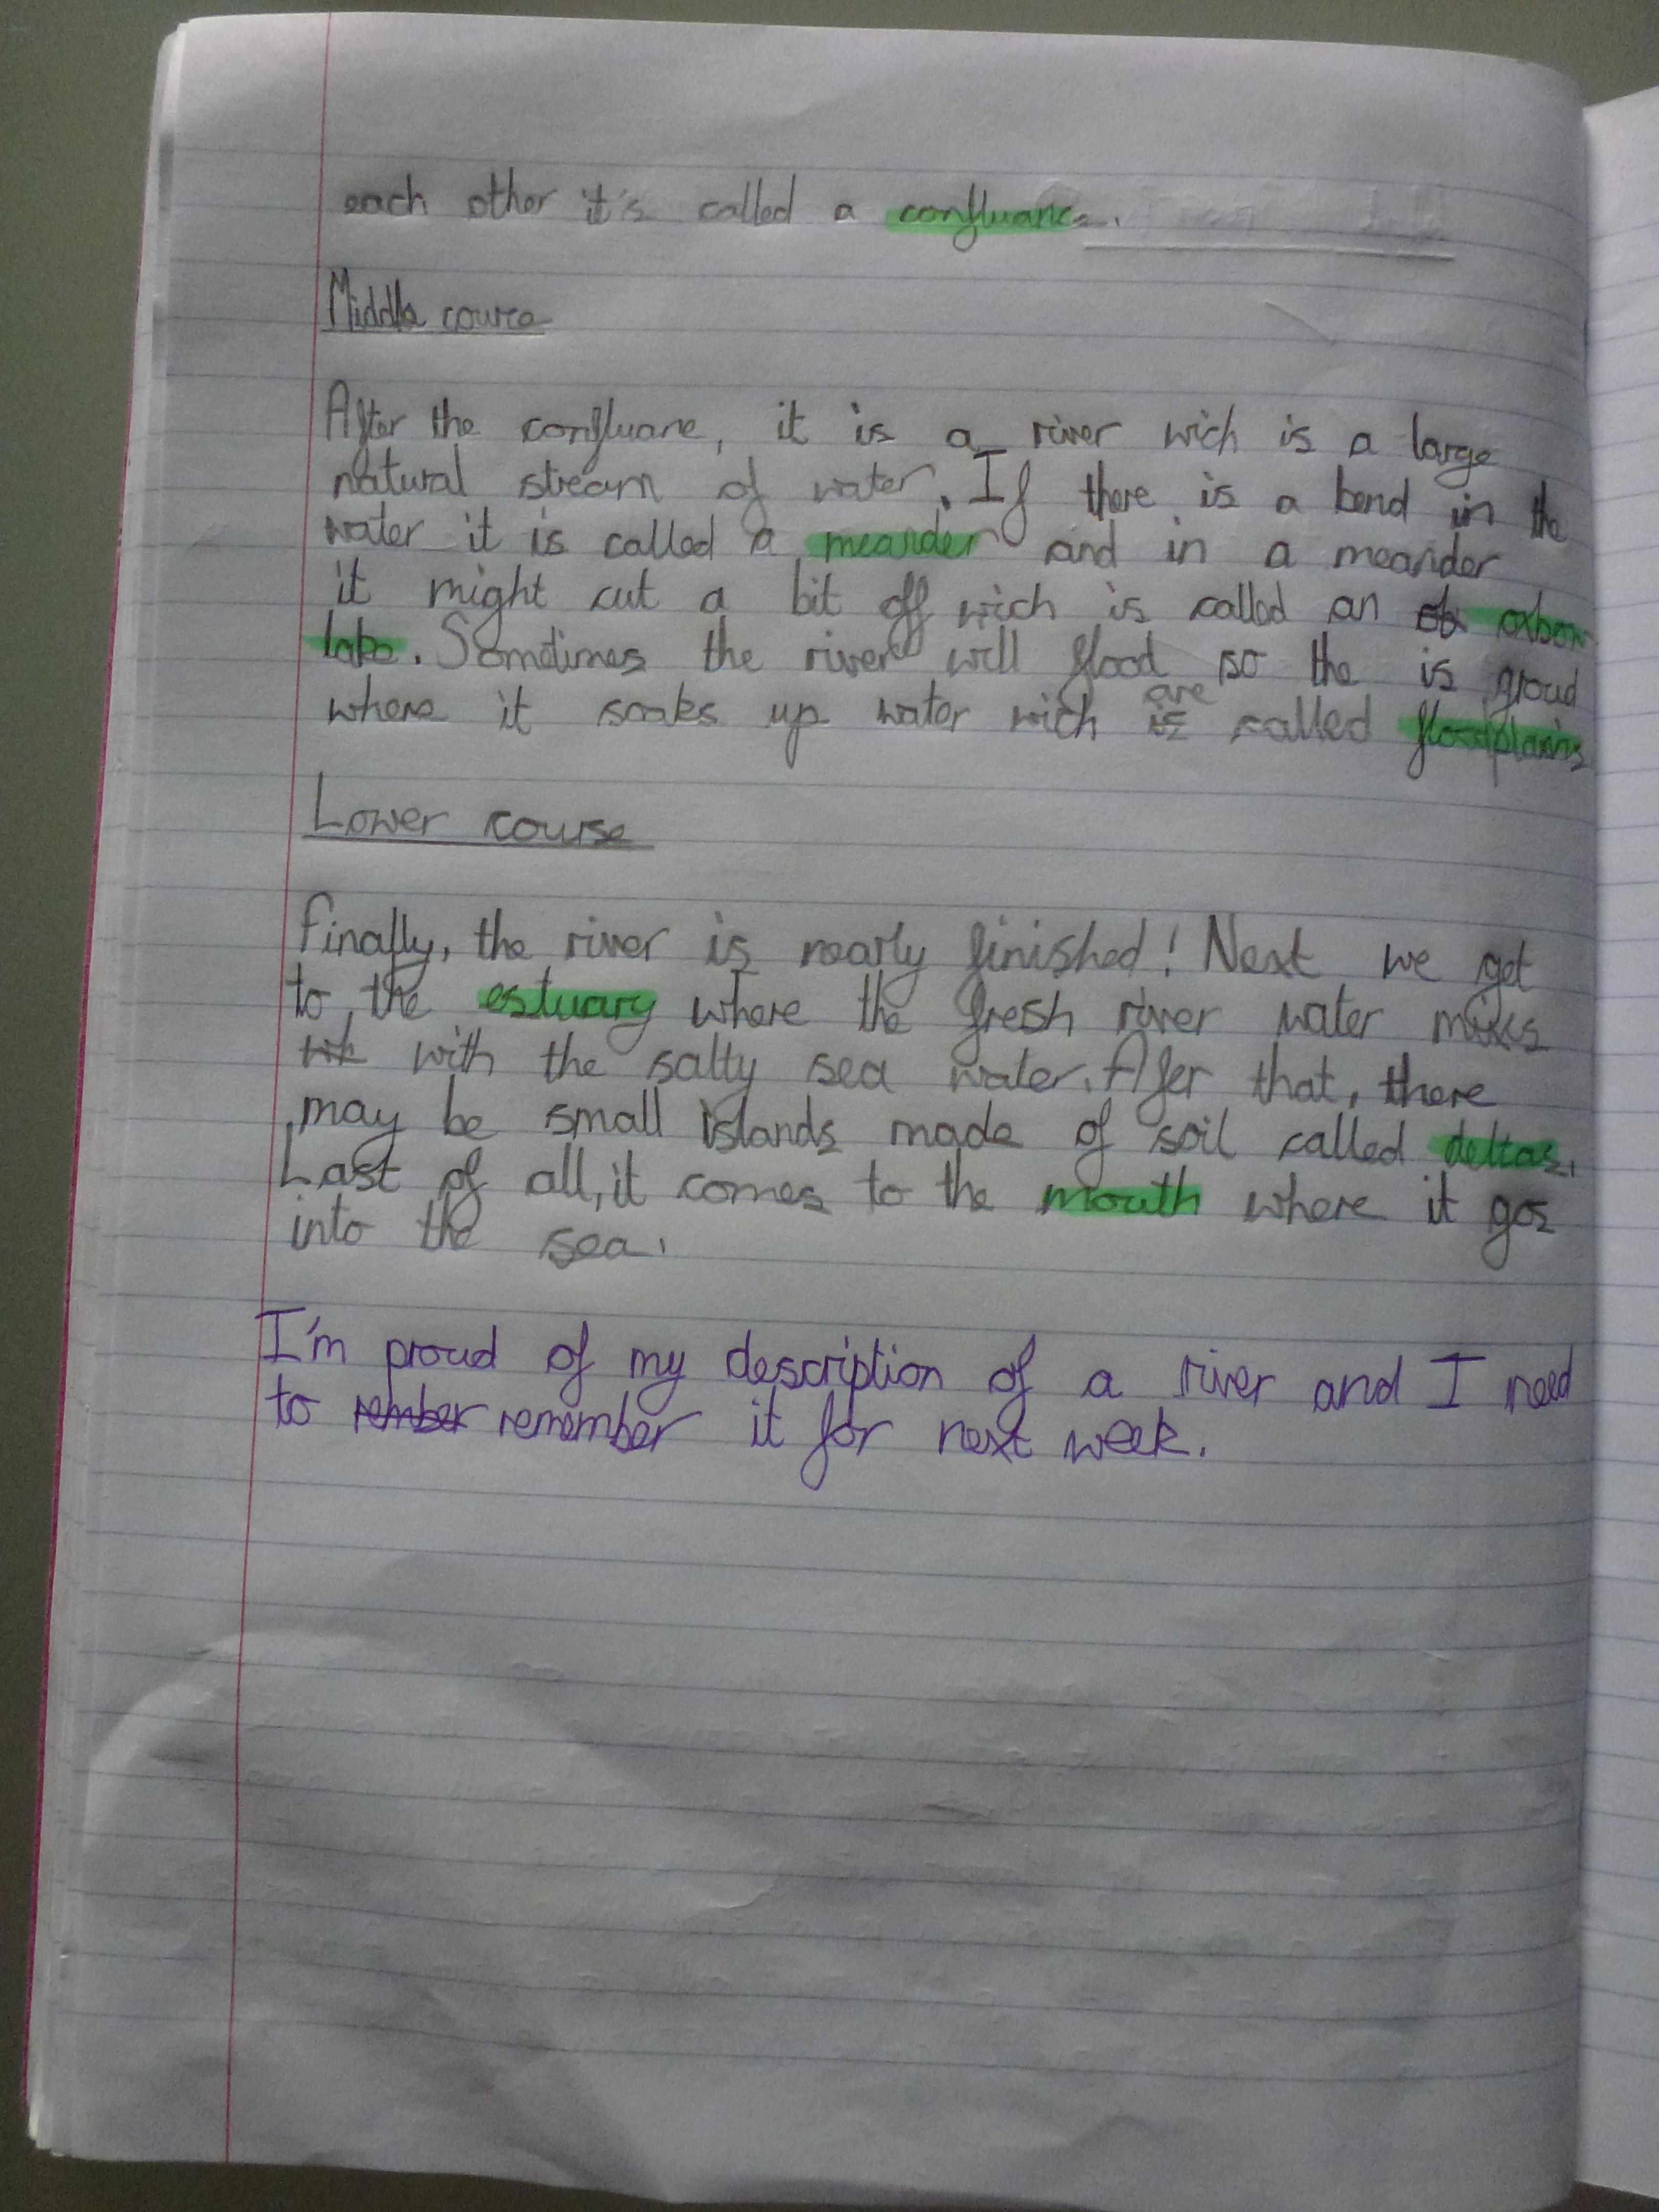 each other it's called a confluance.
Middle cource
After the confluane, it is a river wich is a large
natural stream of water. If there is a bend in the
water it is called a meander and in a meander
it might cut a bit off wich is called an ob oxbow
lake. Sometimes the river will flood so the is groud
where it soaks up water wich is are called floodplains
Lower course
Finally, the river is nearly finished! Next we get
to the estuary where the fresh river water mixes
with the salty sea water. Afer that, there
may be small islands made of soil called deltas.
Last of all, it comes to the mouth where it gos
into the sea.
I'm proud of my description of a river and I need
to rember remember it for next week.